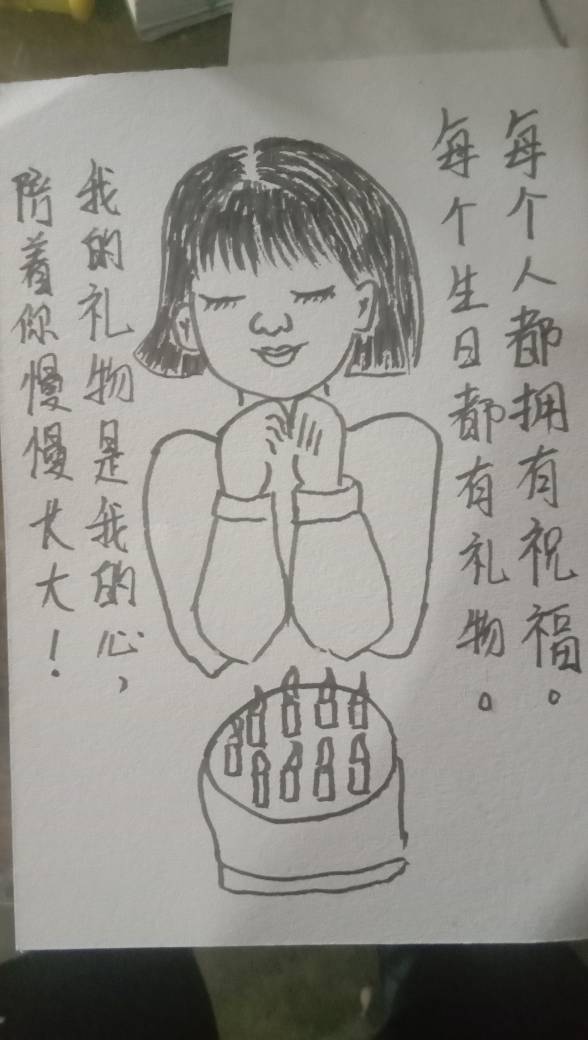 每个人都拥有祝福。
每个生日都有礼物。
我的礼物是我的心，
陪着你慢慢长大！